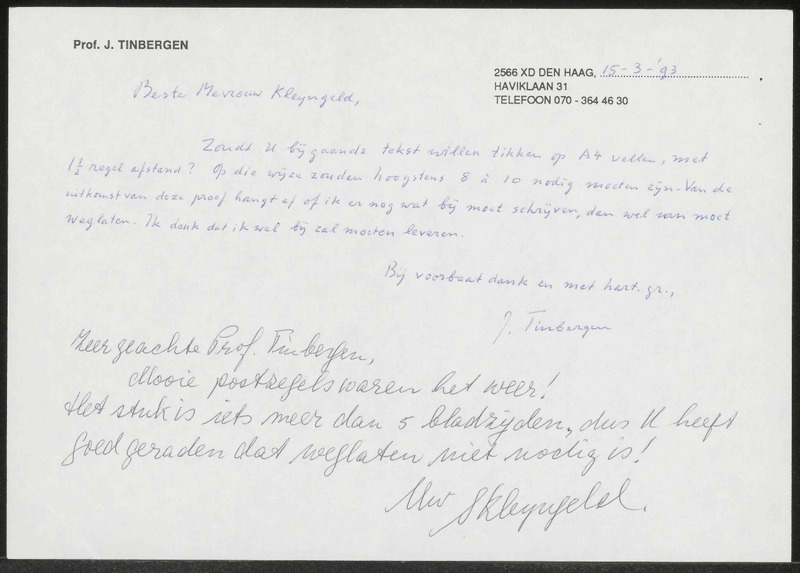 Prof. J. TINBERGEN
2566 XD DEN HAAG, 15-3-'93
HAVIKLAAN 31
TELEFOON 070 - 364 46 30
Beste Mevrouw Kleyngeld,
Zoudt U bijgaande tekst willen tikken op A4 vellen, met
1½ regel afstand? Op die wijze zouden hoogstens 8 à 10 nodig moeten zijn. Van de
uitkomst van deze proef hangt af of ik er nog wat bij moet schrijven, dan wel van moet
weglaten. Ik denk dat ik wel bij zal moeten leveren.
Bij voorbaat dank en met hart. gr.,
J. Tinbergen
Zeer geachte Prof. Tinbergen,
Mooie postzegels waren het weer!
Het stuk is iets meer dan 5 bladzijden, dus U heeft
goed geraden dat weglaten niet nodig is!
Uw SKleyngeld.